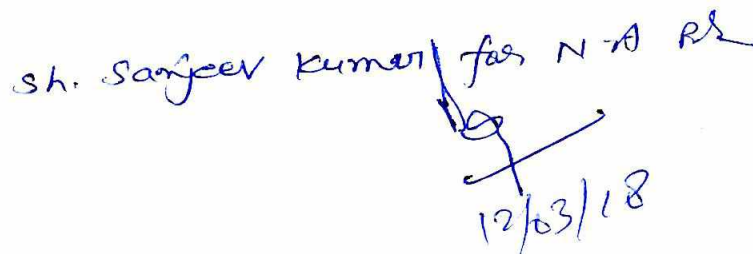 Sh. Sanjeev Kumar for N-A Pl
12/03/18